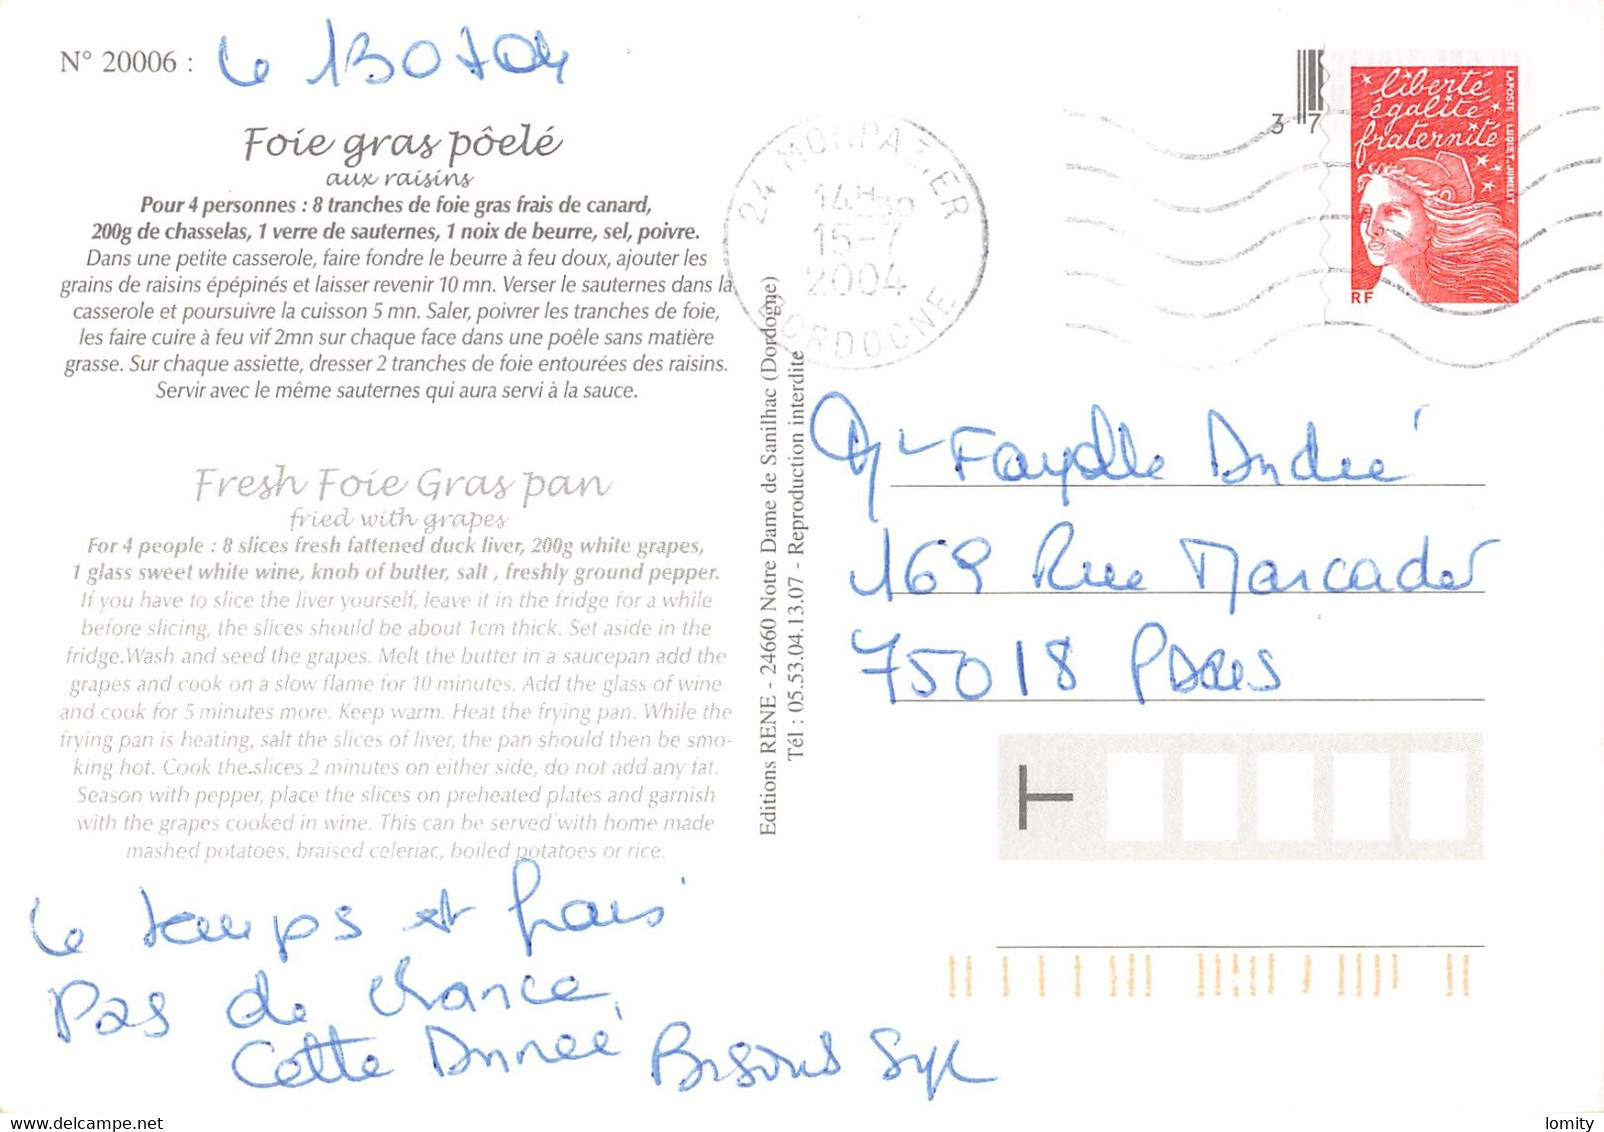 N° 20006 : Le 130704
Foie gras pôelé
aux raisins
Pour 4 personnes : 8 tranches de foie gras frais de canard,
200g de chasselas, 1 verre de sauternes, 1 noix de beurre, sel, poivre.
Dans une petite casserole, faire fondre le beurre à feu doux, ajouter les
grains de raisins épépinés et laisser revenir 10 mn. Verser le sauternes dans la
casserole et poursuivre la cuisson 5 mn. Saler, poivrer les tranches de foie,
les faire cuire à feu vif 2mn sur chaque face dans une poêle sans matière
grasse. Sur chaque assiette, dresser 2 tranches de foie entourées des raisins.
Servir avec le même sauternes qui aura servi à la sauce.
Fresh Foie Gras pan
fried with grapes
For 4 people : 8 slices fresh fattened duck liver, 200g white grapes,
1 glass sweet white wine, knob of butter, salt , freshly ground pepper.
If you have to slice the liver yourself, leave it in the fridge for a while
before slicing, the slices should be about 1cm thick. Set aside in the
fridge.Wash and seed the grapes. Melt the butter in a saucepan add the
grapes and cook on a slow flame for 10 minutes. Add the glass of wine
and cook for 5 minutes more. Keep warm. Heat the frying pan. While the
frying pan is heating, salt the slices of liver, the pan should then be smo-
king hot. Cook the slices 2 minutes on either side, do not add any fat.
Season with pepper, place the slices on preheated plates and garnish
with the grapes cooked in wine. This can be served with home made
mashed potatoes, braised celeriac, boiled potatoes or rice.
Le temps est frais
Pas de chance,
Cette Année Bisous
Editions RENE - 24660 Notre Dame de Sanilhac (Dordogne)
Tél : 05.53.04.13.07 - Reproduction interdite
24 MONPAZIER
14H30
15-7
2004
DORDOGNE
37
liberté
égalité
fraternité
RF
LA POSTE LUQUET. JUMELET
Mr Fayolle André
169 Rue Marcadet
75018 Paris
lomity